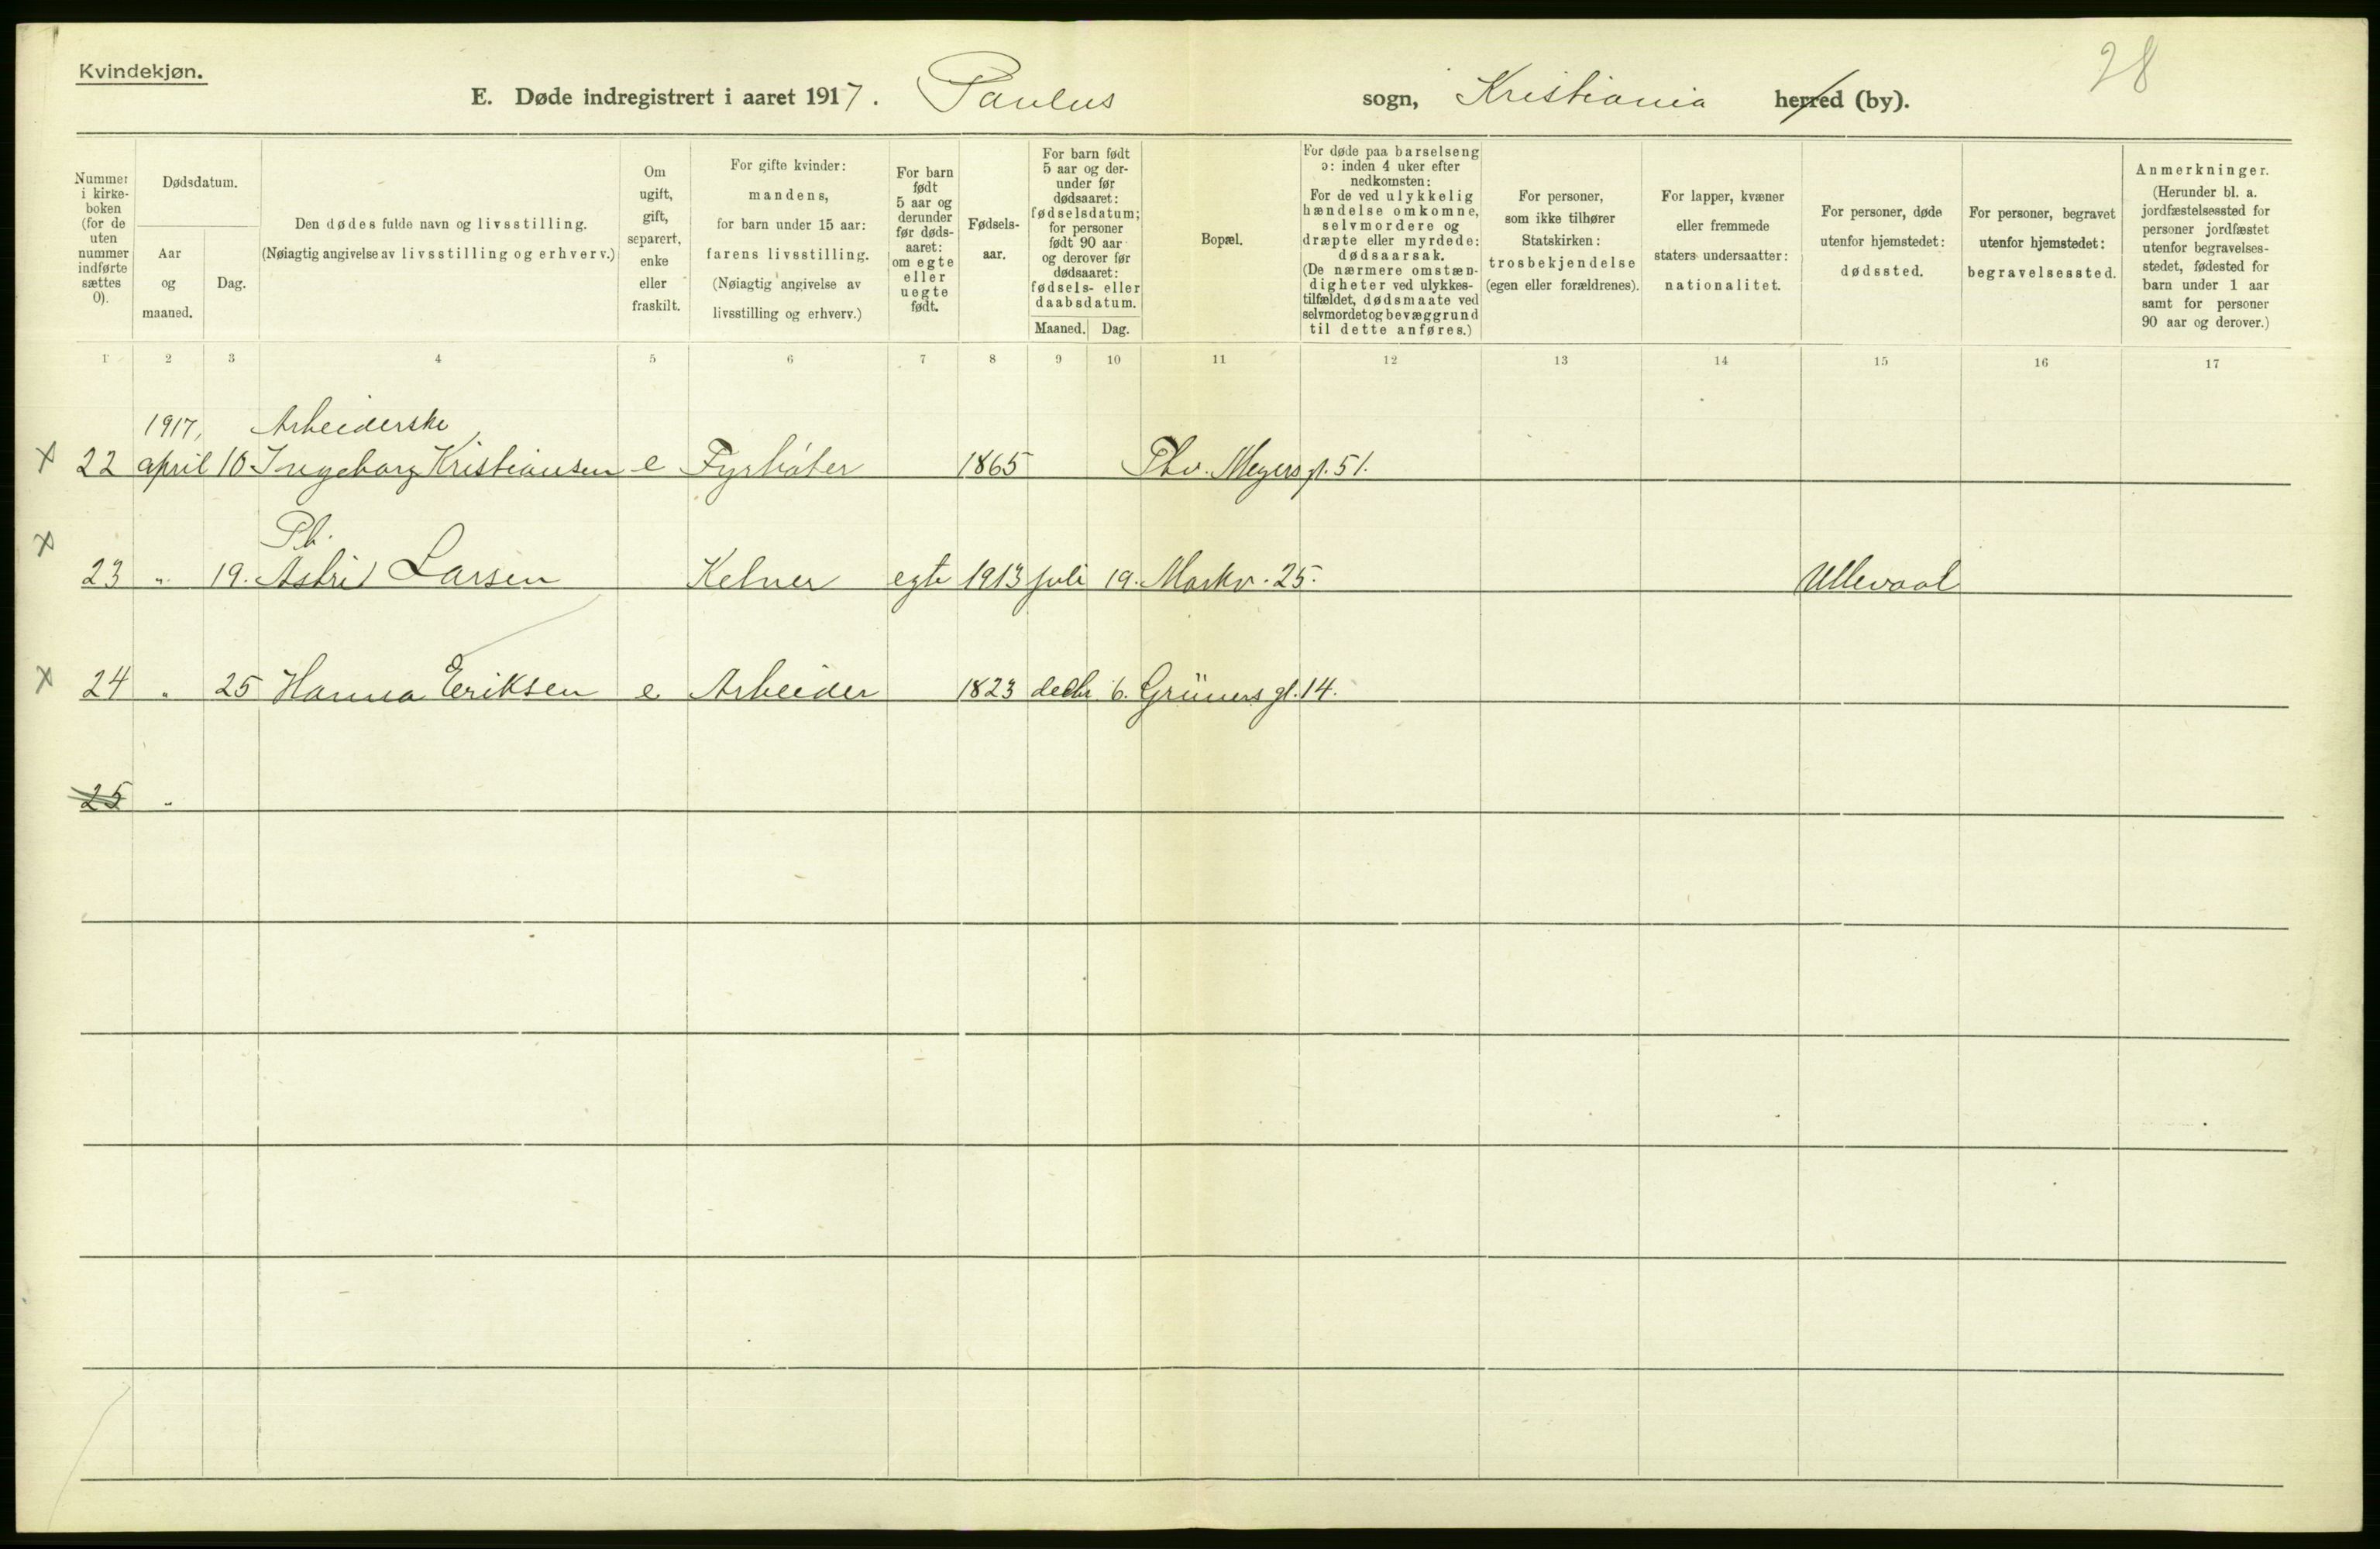 Kvindekjøn.
28
E. Døde indregistrert i aaret 1917. Paulus sogn, Kristiania herred (by).
Nummer i kirkeboken (for de uten nummer indførte sættes 0).
Dødsdatum.
Aar og maaned.
Dag.
Den dødes fulde navn og livsstilling.
(Nøiagtig angivelse av livsstilling og erhverv.)
Om ugift, gift, separert, enke eller fraskilt.
For gifte kvinder: mandens, for barn under 15 aar: farens livsstilling. (Nøiagtig angivelse av livsstilling og erhverv.)
For barn født 5 aar og derunder før dødsaaret: om egte eller uegte født.
Fødselsaar.
For barn født 5 aar og derunder før dødsaaret: fødselsdatum; for personer født 90 aar og derover før dødsaaret: fødsels- eller daabsdatum.
Maaned. Dag.
Bopæl.
For døde paa barselseng ɔ: inden 4 uker efter nedkomsten: For de ved ulykkelig hændelse omkomne, selvmordere og dræpte eller myrdede: dødsaarsak. (De nærmere omstændigheter ved ulykkestilfældet, dødsmaate ved selvmordet og bevæggrund til dette anføres.)
For personer, som ikke tilhører Statskirken: trosbekjendelse (egen eller forældrenes).
For lapper, kvæner eller fremmede staters undersaatter: nationalitet.
For personer, døde utenfor hjemstedet: dødssted.
For personer, begravet utenfor hjemstedet: begravelsessted.
Anmerkninger. (Herunder bl. a. jordfæstelsessted for personer jordfæstet utenfor begravelsesstedet, fødested for barn under 1 aar samt for personer 90 aar og derover.)
1 2 3 4 5 6 7 8 9 10 11 12 13 14 15 16 17
1917, Arbeiderske
x 22 april 10 Ingeborg Kristiansen e Fyrbøter 1865 Thv. Meyers gt. 51.
Pb.
x 23 " 19. Astrid Larsen Kelner egte 1913 juli 19. Markv. 25. Ullevaal
x 24 " 25 Hanna Eriksen e Arbeider 1823 decbr. 6. Grüners gt. 14.
25 "